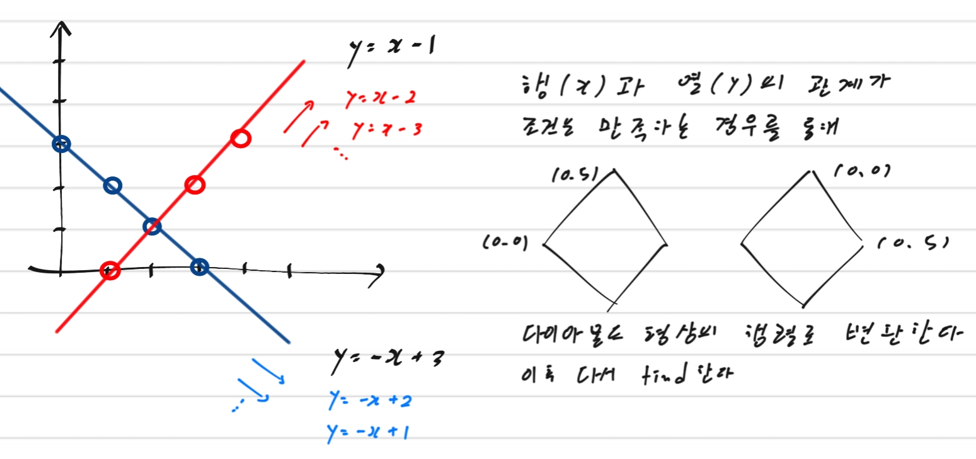 y = x - 1
y = x - 2
y = x - 3
...
y = -x + 3
y = -x + 2
y = -x + 1
...
행(x)과 열(y)의 관계가
조건을 만족하는 경우를 통해
(0.5)
(0.0)
(0.0)
(0.5)
다이아몬드 형상의 행렬로 변환한다
이후 다시 find 한다